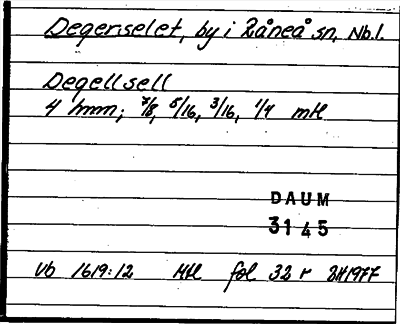 Degerselet, by i Råneå sn, Nb.l.
Degellsell
4 hmm; 7/8, 5/16, 3/16, 1/4 mtl
DAUM
3145
Vb 1619:12 Mtl fol 32 r 1977